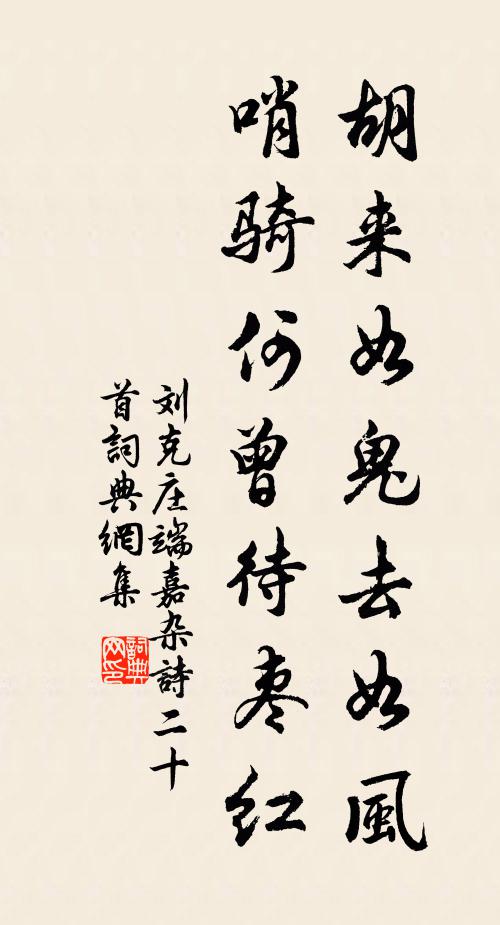 胡来如鬼去如風
哨骑何曾待枣红
刘克庄端嘉杂詩二十
首詞典網集
詞典
网印